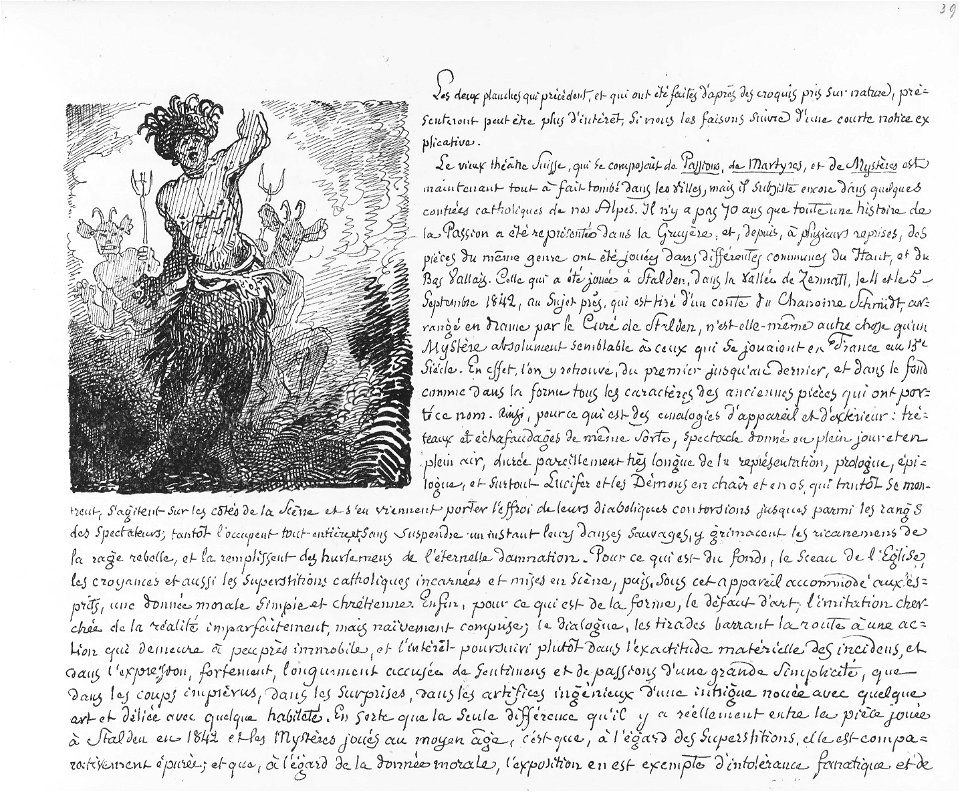 39
Les deux planches qui précèdent, et qui ont été faites d'après des croquis pris sur nature, pré-
senteront peut être plus d'intérêt, si nous les faisons suivre d'une courte notice ex
plicative.
Le vieux théâtre Suisse, qui se composait de Passions, de Martyres, et de Mystères est
maintenant tout à fait tombé dans les villes, mais il subsiste encore dans quelques
contrées catholiques de nos Alpes. Il n'y a pas 70 ans que toute une histoire de
la Passion a été représentée dans la Gruyère, et, depuis, à plusieurs reprises, des
pièces du même genre ont été jouées dans différentes communes du Haut, et du
Bas Vallais. Celle qui a été jouée à Stalden, dans la vallée de Zermatt, le 4 et le 5
Septembre 1842, au sujet près, qui est tiré d'un conte du Chanoine Schmidt, ar-
rangé en drame par le Curé de Stalden, n'est elle-même autre chose qu'un
Mystère absolument semblable à ceux qui se jouaient en France au 15e
Siècle. En effet, l'on y retrouve, du premier jusqu'au dernier, et dans le fond
comme dans la forme tous les caractères des anciennes pièces qui ont por-
té ce nom. Ainsi, pour ce qui est des analogies d'appareil et d'extérieur : tré-
teaux et échafaudages de même sorte, spectacle donné en plein jour et en
plein air, durée pareillement très longue de la représentation, prologue, épi-
logue, et surtout Lucifer et les Démons en chair et en os, qui tantôt se mon-
trent, s'agitent sur les côtés de la Scène et s'en viennent porter l'effroi de leurs diaboliques contorsions jusques parmi les rangs
des spectateurs; tantôt l'occupent tout entière, et sans suspendre un instant leurs danses sauvages, y grimacent les ricanemens de
la rage rebelle, et la remplissent des hurlemens de l'éternelle damnation. Pour ce qui est du fonds, le sceau de l'Eglise,
les croyances et aussi les superstitions catholiques incarnées et mises en scène, puis, sous cet appareil accommodé aux es-
prits, une donnée morale simple et chrétienne. Enfin, pour ce qui est de la forme, le défaut d'art, l'imitation cher-
chée de la réalité imparfaitement, mais naïvement comprise; le dialogue, les tirades barrant la route à une ac-
tion qui demeure à peu près immobile, et l'intérêt poursuivi plutôt dans l'exactitude matérielle des incidens, et
dans l'expression, fortement, longuement accusée de sentimens et de passions d'une grande simplicité, que
dans les coups imprévus, dans les surprises, dans les artifices ingénieux d'une intrigue nouée avec quelque
art et déliée avec quelque habileté. En sorte que la seule différence qu'il y a réellement entre la pièce jouée
à Stalden en 1842 et les Mystères joués au moyen âge, c'est que, à l'égard des superstitions, elle est compa-
rativement épurée; et que, à l'égard de la donnée morale, l'exposition en est exempte d'intolérance fanatique et de